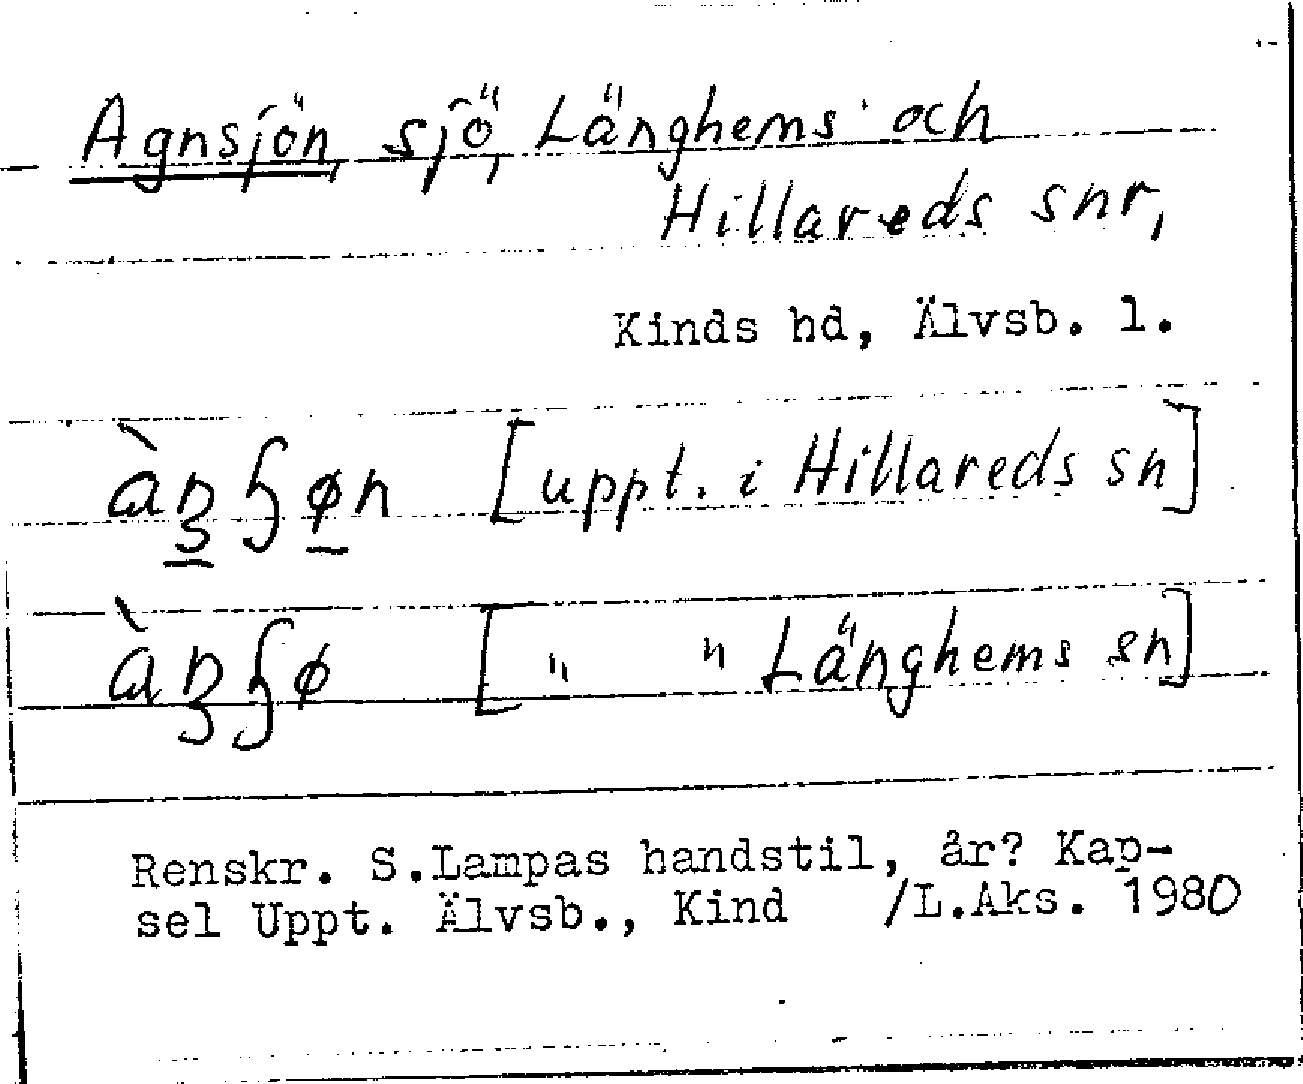 Agnsjön, sjö, Länghems och
Hillareds snr,
Kinds hd, Älvsb. l.
[uppt. i Hillareds sn]
[" " Länghems sn]
Renskr. S.Lampas handstil, år? Kap-
sel Uppt. Älvsb., Kind /L.Aks. 1980